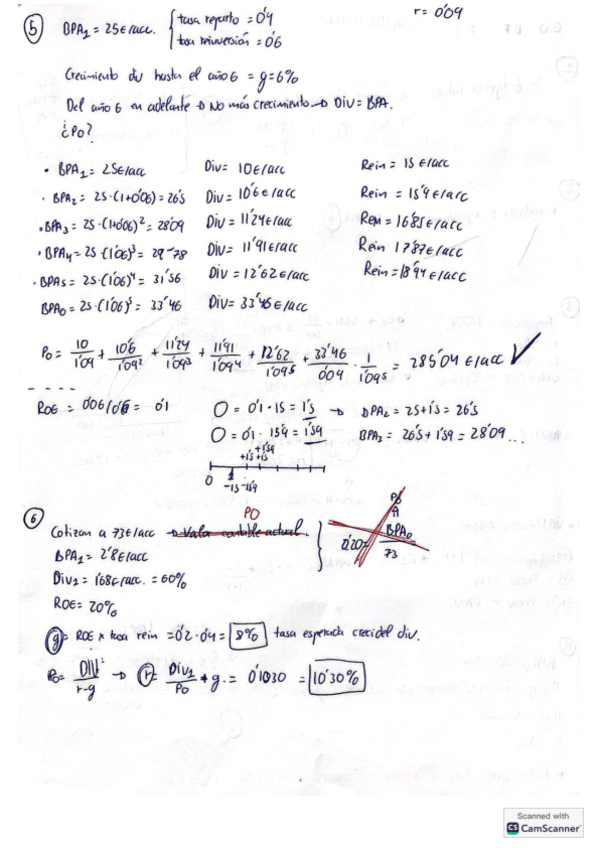 r = 0'09
⑤ BPA₁ = 25€/acc. { tasa reparto = 0'4
tasa reinversión = 0'6
Crecimiento div hasta el año 6 = g = 6%
Del año 6 en adelante → No más crecimiento → Div = BPA.
¿P₀?
• BPA₁ = 25€/acc Div = 10€/acc Rein = 15€/acc
• BPA₂ = 25·(1+0'06) = 26'5 Div = 10'6€/acc Rein = 15'9€/acc
• BPA₃ = 25·(1+0'06)² = 28'09 Div = 11'24€/acc Rein = 16'85€/acc
• BPA₄ = 25·(1'06)³ = 29-78 Div = 11'91€/acc Rein 17'87€/acc
• BPA₅ = 25·(1'06)⁴ = 31'56 Div = 12'62€/acc Rein = 18'94€/acc
BPA₆ = 25·(1'06)⁵ = 33'46 Div = 33'45€/acc
P₀ = 10/1'09 + 10'6/1'09² + 11'24/1'09³ + 11'91/1'09⁴ + 12'62/1'09⁵ + 33'46/0'09 · 1/1'09⁵ = 285'04 €/acc ✓
ROE = 0'06/0'6 = 0'1 0 = 0'1·15 = 1'5 → BPA₂ = 25+1'5 = 26'5
0 = 0'1·15'9 = 1'59 BPA₃ = 26'5+1'59 = 28'09 ...
+1'59
+1'5 +1'5
0 1
-15 -15'9
P0
⑥ Cotizan a 73€/acc → Valor contable actual.
BPA₁ = 2'8€/acc
Div₁ = 1'68€/acc. = 60%
ROE = 20%
0'20 = BPA₀/73
g = ROE × tasa rein = 0'2·0'4 = 8% tasa esperada crec. del div.
P₀ = DIV/r-g → r = Div₁/P₀ + g. = 0'1030 = 10'30%
Scanned with
CS CamScanner